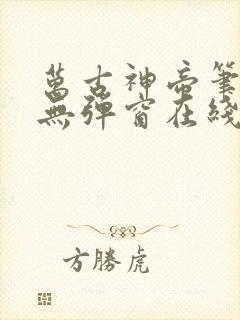 萬古神帝筆
無彈窗在綫
方勝虎